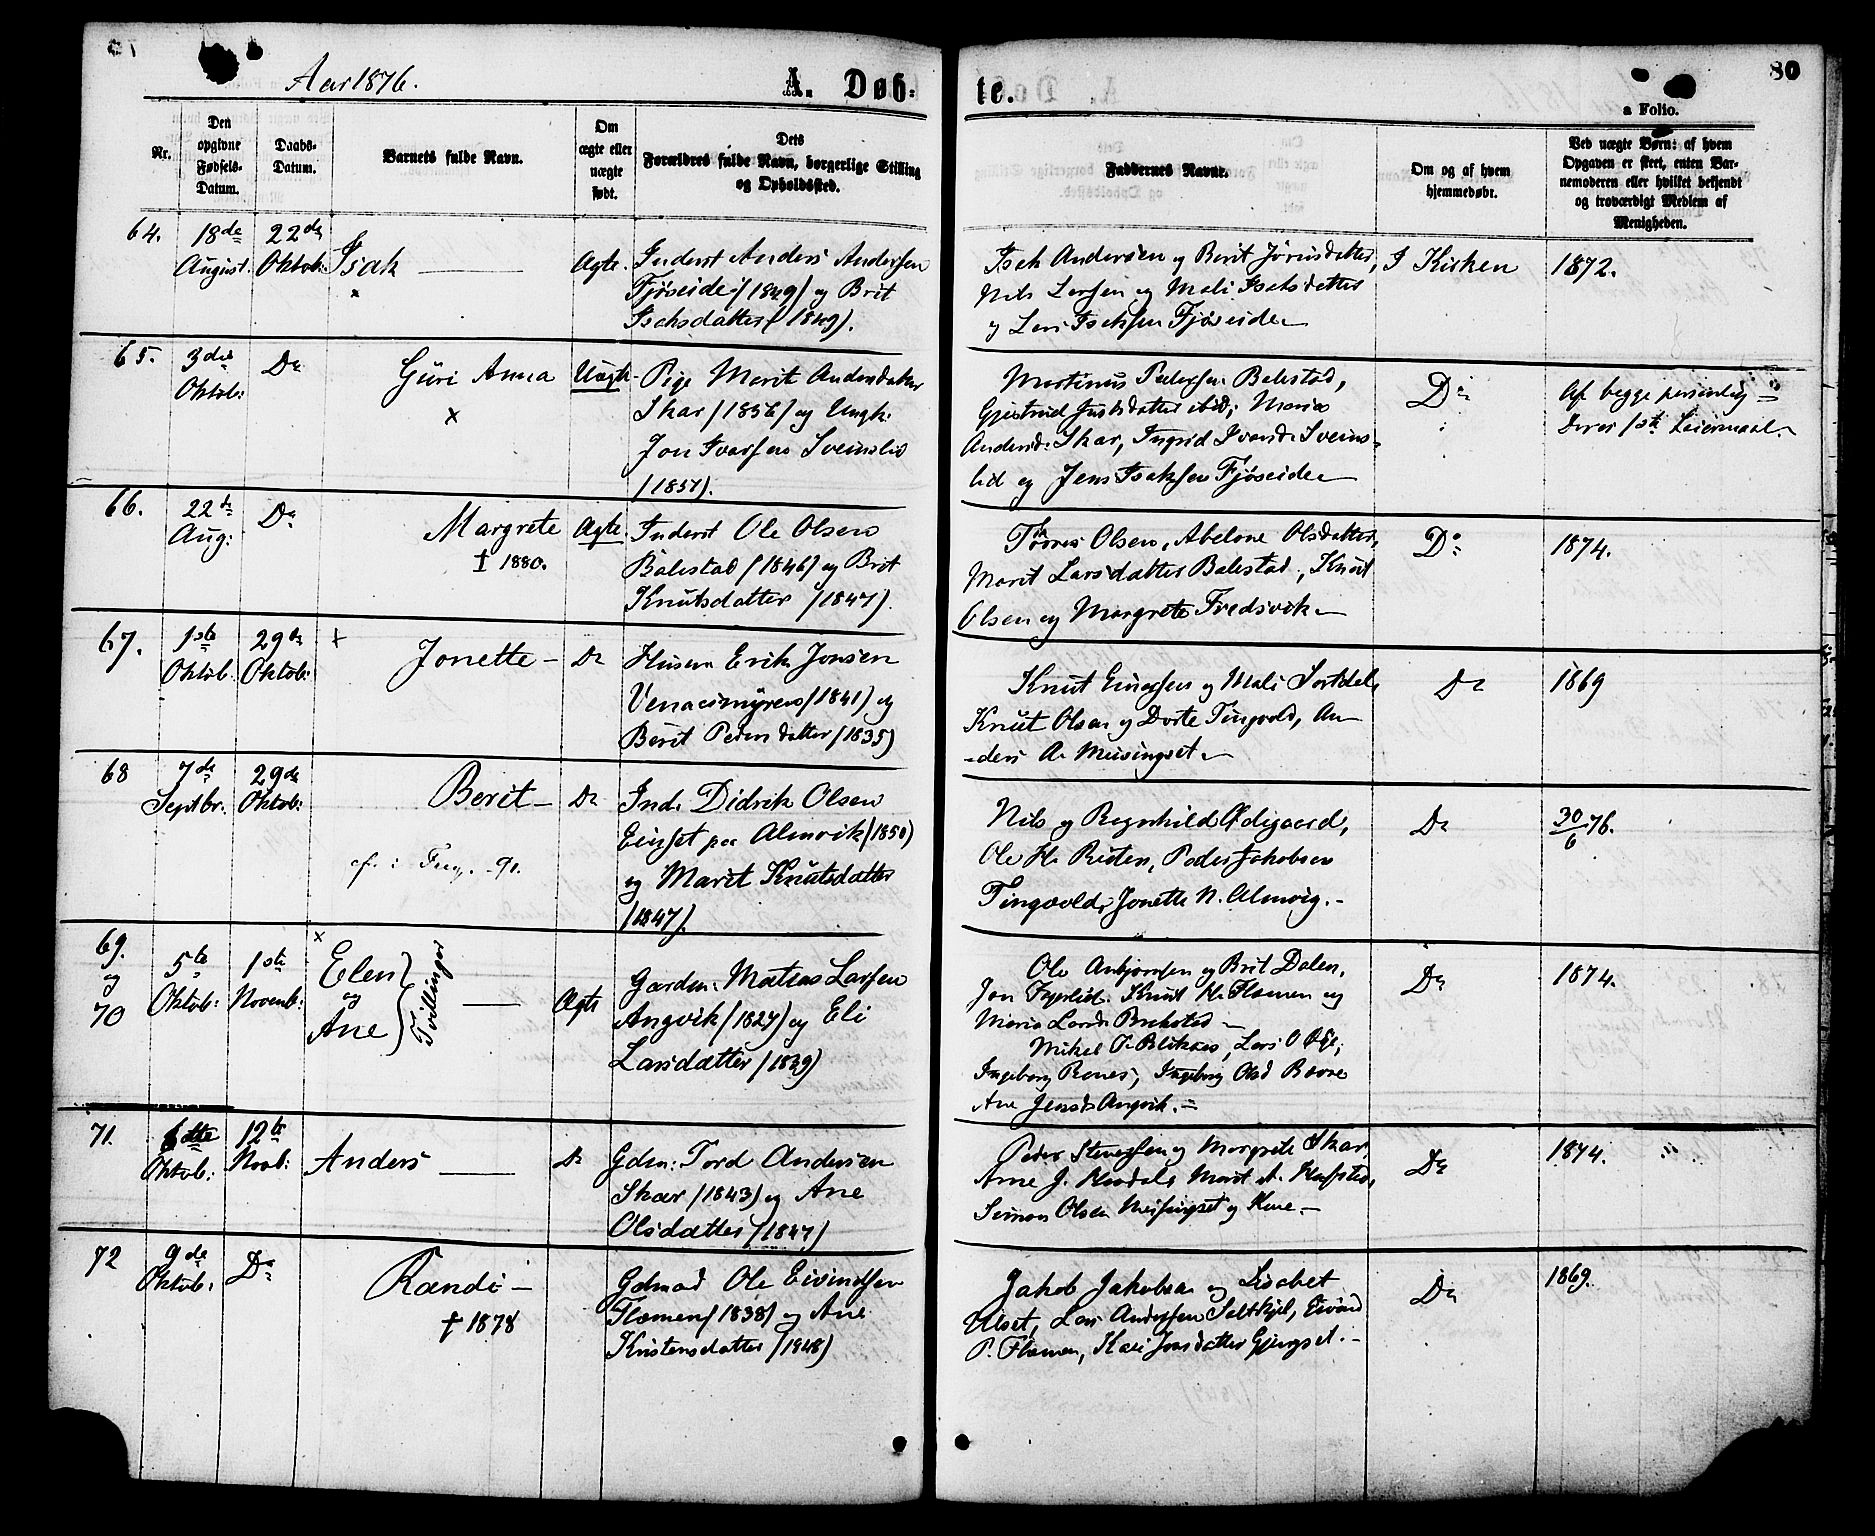 Aar 1876.
A. Døb-
te.
80
a Folio.
Nr.
Den opgivne Fødsels-Datum.
Daabs-Datum.
Barnets fulde Navn.
Om ægte eller uægte født.
Dets Forældres fulde Navn, borgerlige Stilling og Opholdssted.
Faddernes Navne.
Om og af hvem hjemmedøbt.
Ved uægte Børn: af hvem Opgaven er skeet, enten Barnemoderen eller hvilket bekjendt og troværdigt Medlem af Menigheden.
64.
18de August.
22de Oktob:
Isak
x
Ægte.
Inderst Anders Andersen
Fjøseide (1849) og Brit
Isaksdatter (1849).
Isak Andersen og Berit Jörnsdatter,
Nils Larsen og Mali Isaksdatter
og Lars Isaksen Fjøseide
I Kirken
1872.
65.
3die Oktob:
Do
Guri Anna
x
Uægte
Pige Marit Andersdatter
Skar (1856) og Ungk:
Jon Ivarsen Sveinslid
(1857).
Martinus Pedersen Balestad,
Gjertrud ibid; Marie
Andersd: Skar, Ingrid Ivarsd: Sveins-
lid og Jens Isaksen Fjøseide
Do
Af begge personlig
Deres 1ste Leiermaal.
66.
22de Aug:
Do
Margrete
† 1880.
Ægte.
Inderst Ole Olsen
Balestad (1846) og Brit
Knutsdatter (1847).
Olsen, Abelone Olsdatter,
Marit Larsdatter Balestad, Knut
Olsen og Margrete Fredsvik
Do
1874.
67.
1ste Oktob.
29de Oktob:
x
Jonette
Do
Husm Erik Jonsen
(1841) og
Berit Pedersdatter (1835)
Knut og Mali Sortdal,
Knut Olsen og Dorte Tingvold, An-
-ders A. Meisingset
Do
1869
68
7de Septbr.
29de Oktob:
Berit
Do
Ind: Didrik Olsen
Einset paa Almvik (1850)
og Marit Knutsdatter
(1847).
Nils og Ragnhild Ødegaard,
Ole H. Peder Jakobsen
Tingvold, Jonette N. Almvig.
Do
30/6 76.
69.
og
70
5te Oktob:
1ste Novemb:
x
Elen
og
Ane
Tvillinger
Ægte
Gardm: Matias Larsen
Angvik (1827) og Eli
Larsdatter (1839)
Ole og Brit Dalen,
Jon Knut H. Flemen og
Marie Larsd:
Mikel P. Lars O. Øye,
Ingeborg Ingeborg Olsd
Ane Jensd: Angvik.
Do
1874.
71.
6tte Oktob:
12te Novb:
Anders
Do
Gdm: Tord Andersen
Skar (1843) og Ane
Olsdatter (1847)
Peder og Margrete Skar,
Arne J. Marit A.
Simon Olsen Meisingset og Kone
Do
1874.
72
9de Oktob:
Do
Randi
† 1878
Gdmand Ole Eivindsen
Flemen (1838) og Ane
Kristensdatter (1848)
Jakob Jakobsen og Lisabet
Ulset, Lars Andersen Saltkjel, Eivind
P. Flemen, Kari Jonsdatter
Do
1869.